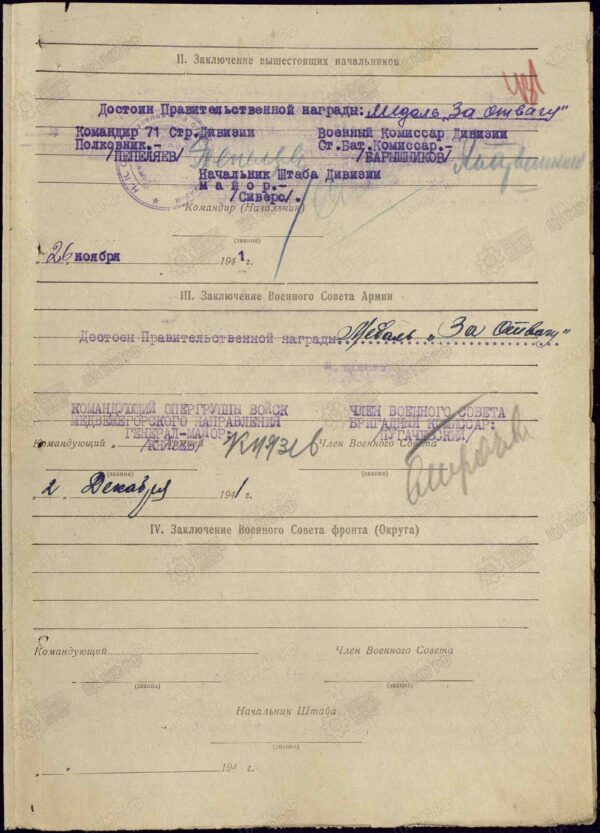 II. Заключение вышестоящих начальников
Достоин Правительственной награды: Медаль "За отвагу"
Командир 71 Стр.Дивизии
Полковник.-
/ПЕПЕЛЯЕВ/
Военный Комиссар Дивизии
Ст.Бат.Комиссар.-
/БАРЫШНИКОВ/
Начальник Штаба Дивизии
майор.-
/Сиверс/.
Командир (Начальник)
(звание)
"26" ноября 1941 г.
III. Заключение Военного Совета Армии
Достоен Правительственной награды: Медаль "За Отвагу"
КОМАНДУЮЩИЙ ОПЕРГРУППЫ ВОЙСК
МЕДВЕЖЕГОРСКОГО НАПРАВЛЕНИЯ
ГЕНЕРАЛ-МАЙОР:
/КНЯЗЕВ/
Князев
ЧЛЕН ВОЕННОГО СОВЕТА
БРИГАДНЫЙ КОМИССАР:
/ПУГАЧЕВСКИЙ/
Командующий
Член Военного Совета
(звание)
(звание)
"2" Декабря 1941 г.
IV. Заключение Военного Совета фронта (Округа)
Командующий
Член Военного Совета
(звание)
(звание)
Начальник Штаба
(звание)
" " 194 г.